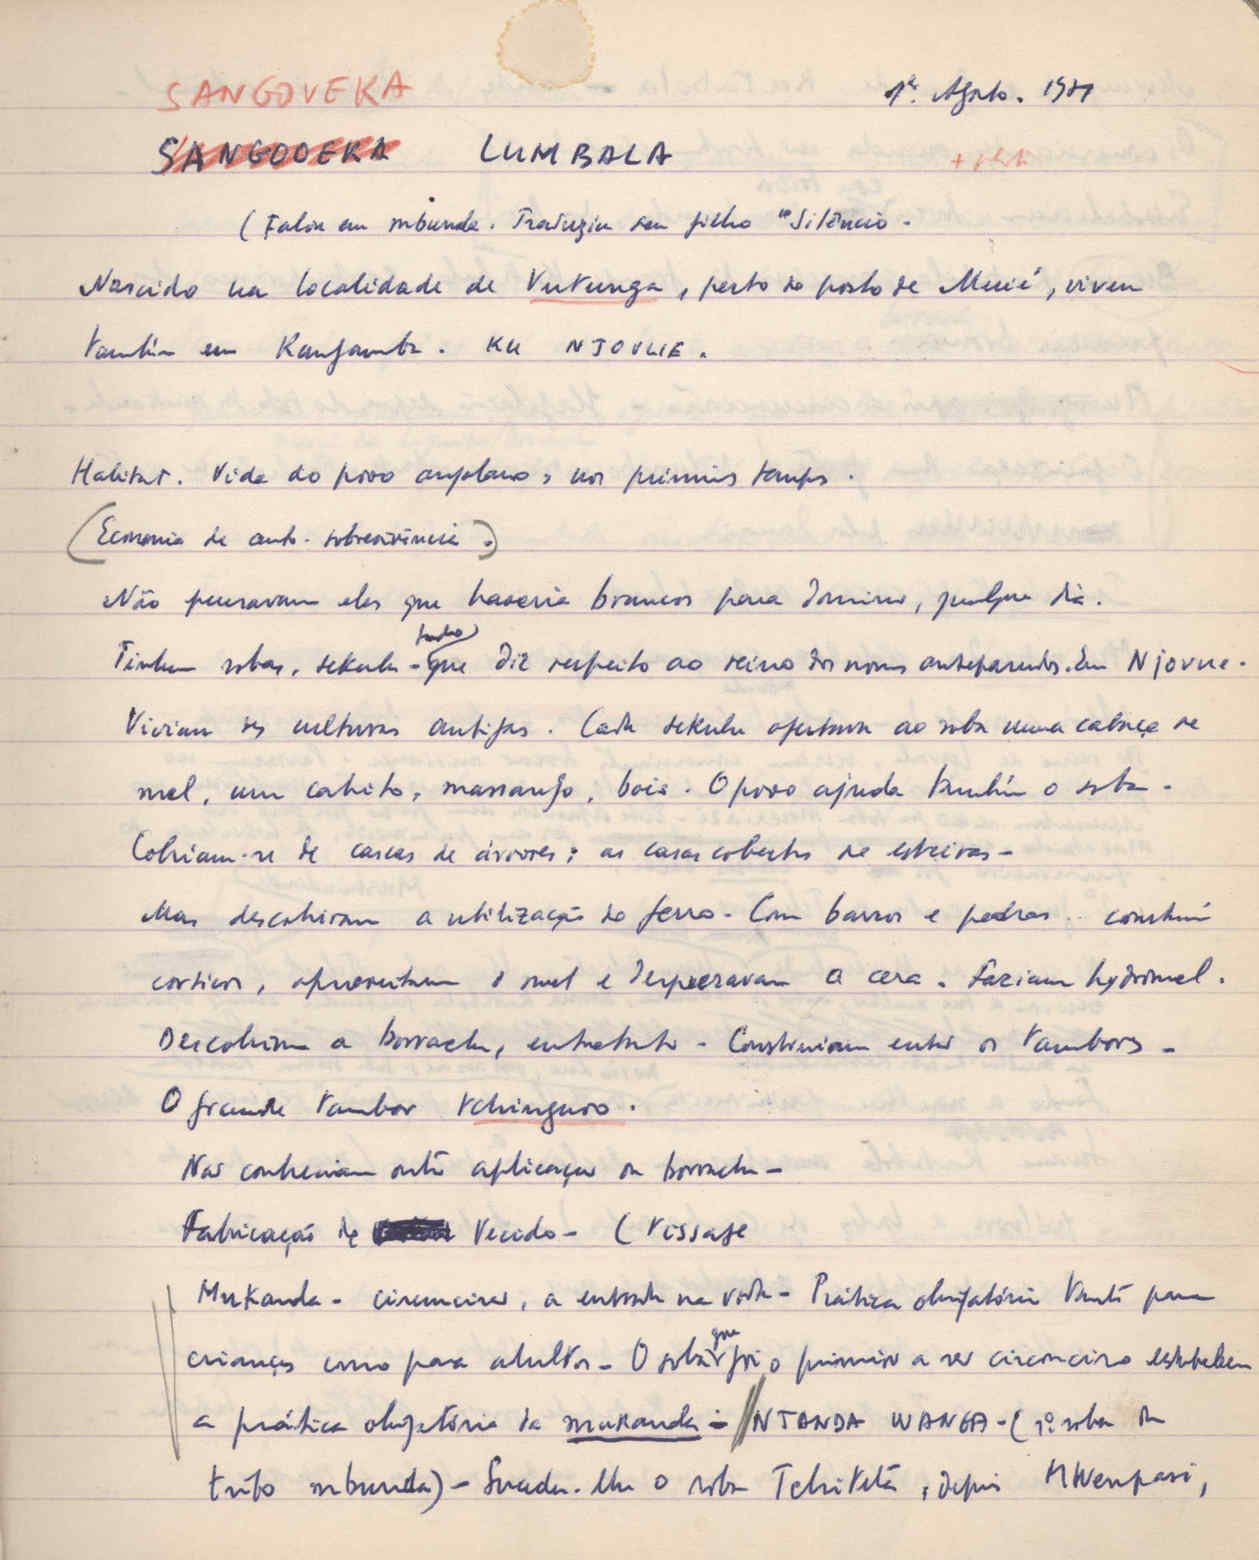 SANGOVEKA
1º. Agosto. 1971
SANGODEKA LUMBALA
(Falou em mbunda. Traduziu seu filho "Silêncio -
Nascido na localidade de Vutunga, perto do posto de Muié, viveu
também em Kangamba. KU NJOVUE.
Habitat. Vida do povo angolano, nos primeiros tempos.
(Economia de auto-sobrevivência.)
Não pensavam eles que haveria brancos para dominar, qualquer dia.
tudo
Tinham sobas, sekulu - que diz respeito ao reino dos nossos antepassados. Em Njovue.
Viviam das culturas antigas. Cada sekulu ofertava ao soba uma cabaça de
mel, um cabrito, massango, bois. O povo ajuda também o soba -
Cobriam-se de cascas de árvores; as casas cobertas de esteiras -
Mas descobriram a utilização do ferro - Com barros e pedras .. constrói
cortiços, apresentam o mel e desprezavam a cera. Faziam hydromel.
Descobrem a borracha, entretanto - Construiam então os tambores -
O grande tambor tchinguvo.
Nas conheciam outra aplicação da borracha -
Fabricação de tecido - (tissage
Mukanda - circuncisão, a entrada na vida - Prática obrigatória tanto para
que
crianças como para adultos - O soba foi o primeiro a ser circunciso estabelecem
a prática obrigatória da mukanda - NJANDA WANGA - (1º soba da
tribo mbunda) - Sucedeu-lhe o soba Tchitetà, depois